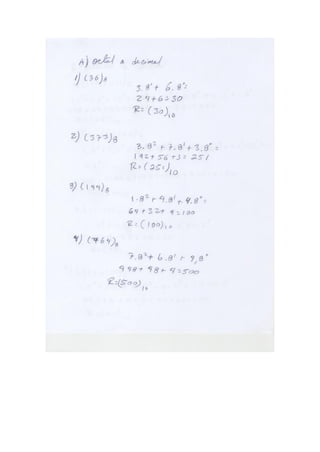 A) octal a decimal
1) (36)8
3.8¹ + 6.8°=
24+6=30
R=(30)10
2) (373)8
3.8² + 7.8¹+3.8°=
192+56+3=251
R=(251)10
3) (144)8
1.8²+4.8¹+4.8°=
64+32+4=100
R=(100)10
4) (764)8
7.8²+6.8¹+4.8°
448+48+4=500
R=(500)10